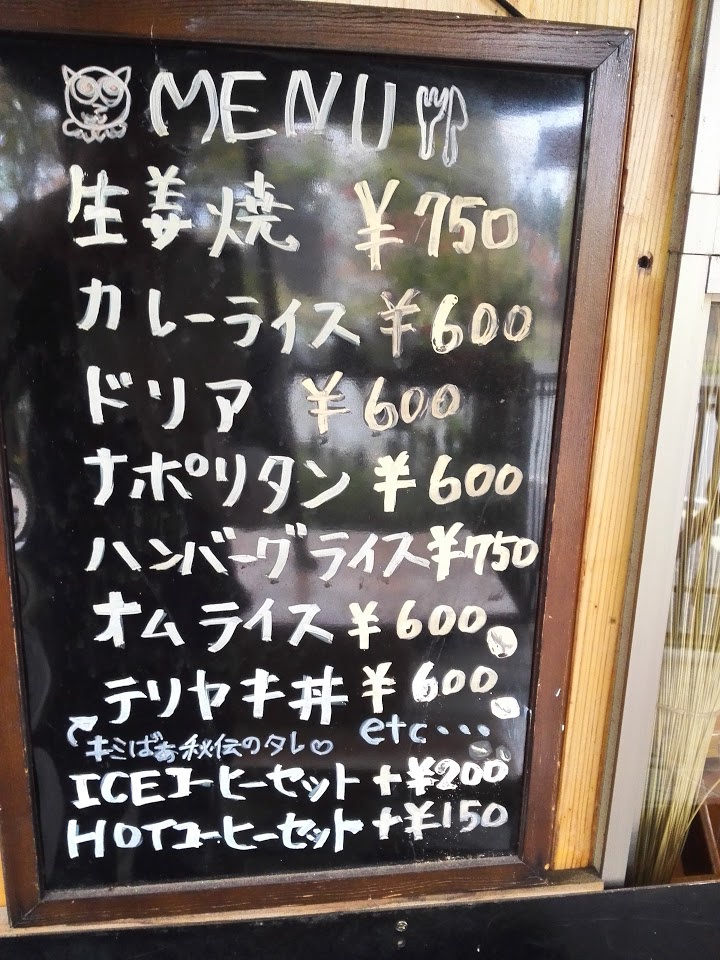 MENU
生姜焼 ¥750
カレーライス ¥600
ドリア ¥600
ナポリタン ¥600
ハンバーグライス ¥750
オムライス ¥600
テリヤキ丼 ¥600
etc・・・
キミばぁ秘伝のタレ♡
ICEコーヒーセット +¥200
HOTコーヒーセット +¥150